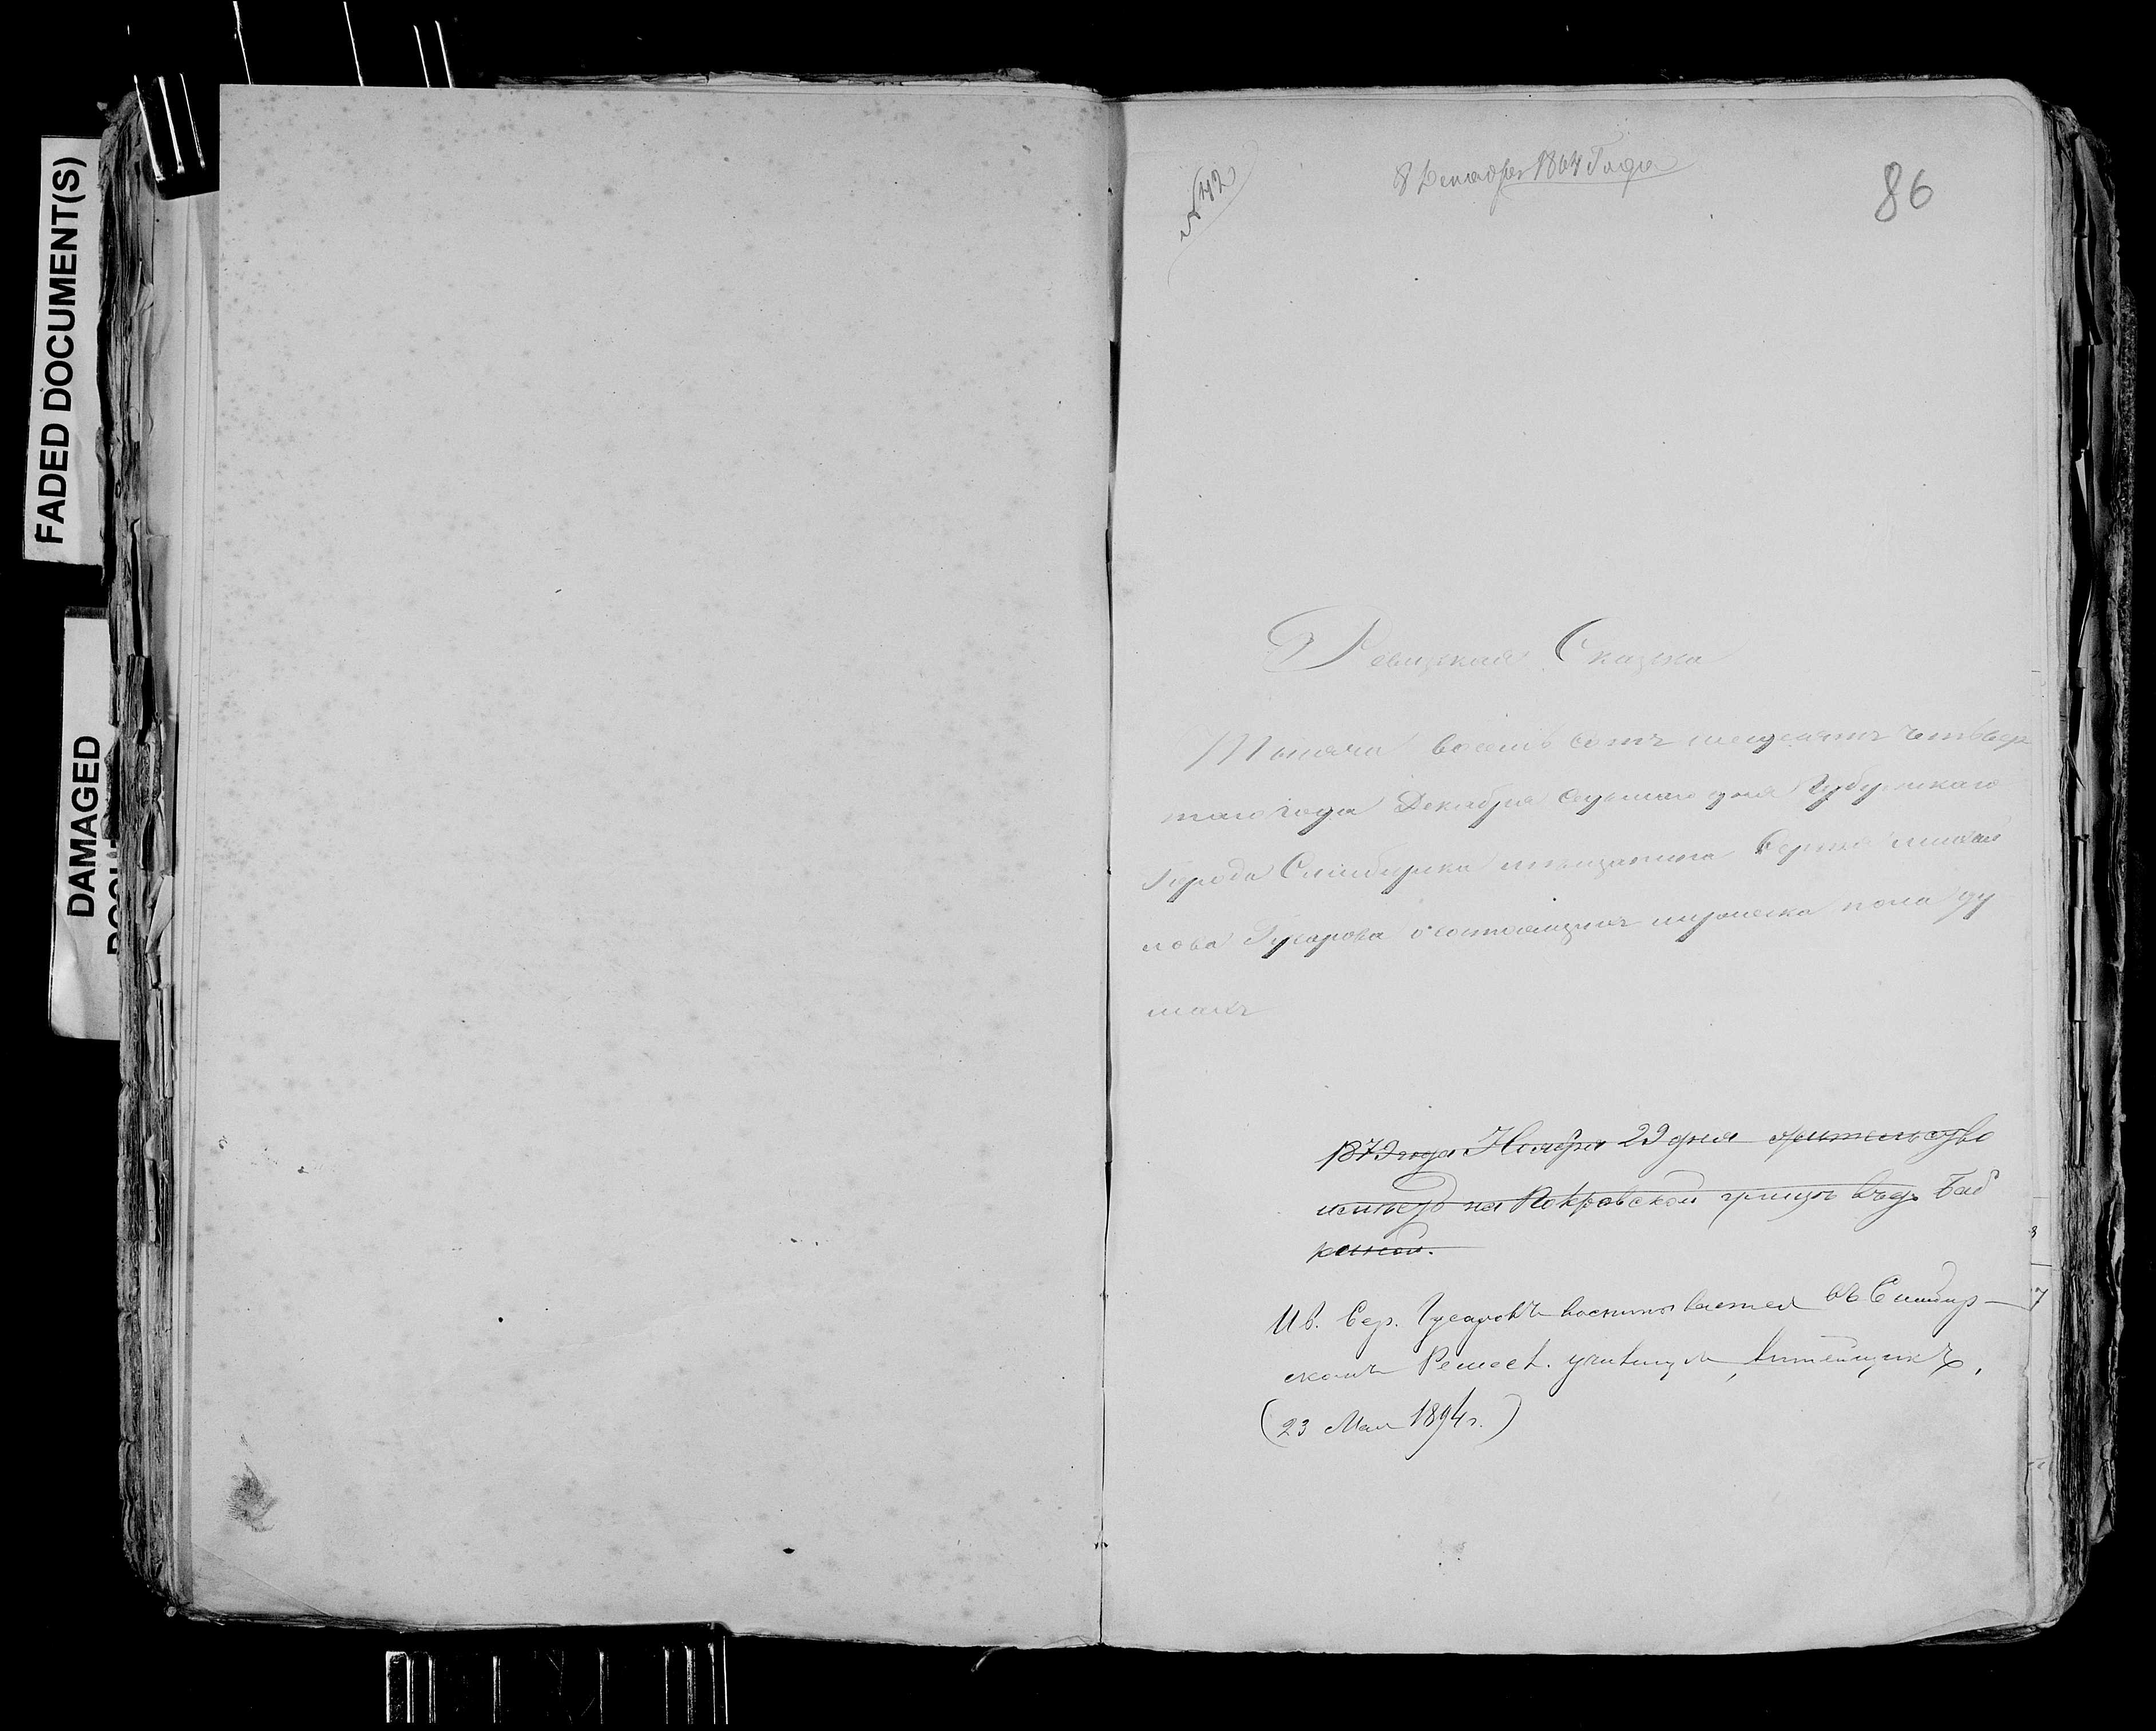 FADED DOCUMENT(S)
DAMAGED
№ 42
8 Декабря 1864 Года
86
Ревизская Сказка
Тысяча восемь сотъ шесдесятъ четьвер
таго года Декабря седьмаго дня Губернскаго
Города Симбирска мещанина Сергея
лова Гусарова о состоящихъ мужеска пола ду
шахъ
1879 года Ноября 29 дня жительство
имеетъ на Покровской улице въ д. Баб
киной.
Ив. Сер. Гусаровъ воспитывается въ Симбир-
скомъ Ремесл. училище, Литейщикъ,
(23 Мая 1894 г.)